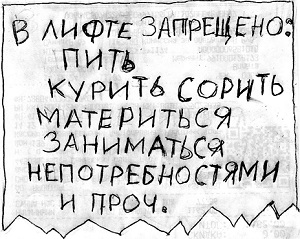 В ЛИФТЕ ЗАПРЕЩЕНО:
ПИТЬ
КУРИТЬ СОРИТЬ
МАТЕРИТЬСЯ
ЗАНИМАТЬСЯ
НЕПОТРЕБНОСТЯМИ
И ПРОЧ.